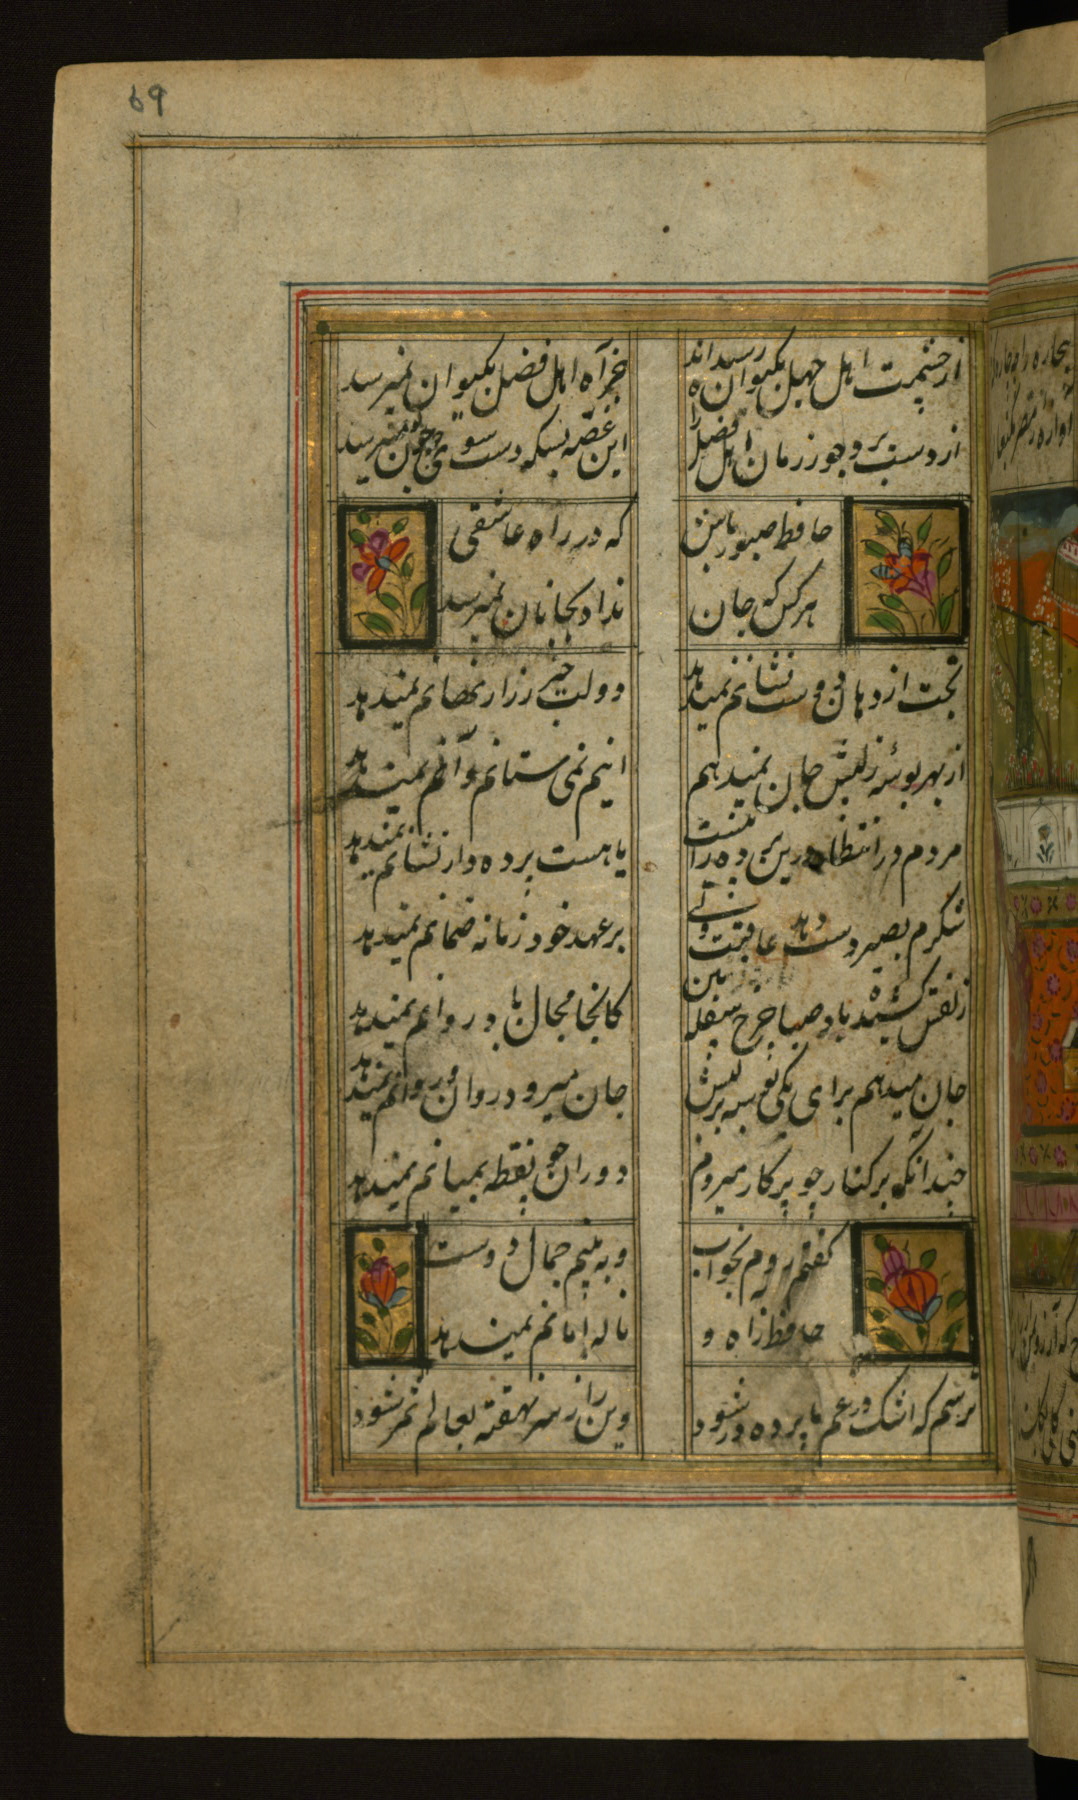 69
از حشمت اهل جهل بکیوان رسیده‌اند
جز آه اهل فضل بکیوان نمیرسد
از دست برد جور زمان اهل فضل را
این غصه بسکه دست سوی جان نمیرسد
حافظ صبور باش
که در راه عاشقی
هر کس که جان
نداد بجانان نمیرسد
بخت از دهان دوست نشانم نمیدهد
دولت خبر ز راز نهانم نمیدهد
از بهر بوسهٔ ز لبش جان نمیدهم
اینم نمی ستانم و آنم نمیدهد
مردم در انتظار درین پرده راه نیست
یا هست پرده دار نشانم نمیدهد
شکرم بصبر دست دهد عاقبت ولی
بر عهد خود زمانه ضمانم نمیدهد
زلفش کشید باد صبا چرخ سفله بین
کانجا مجال باد روانم نمیدهد
جان میدهم برای یکی بوسه بر لبش
جان میرود روان و روانم نمیدهد
چندانکه بر کنار چو پرکار میروم
دوران چو نقطه بمیانم نمیدهد
گفتم روم بخواب
و به بینم جمال دوست
حافظ ز آه و
ناله امانم نمیدهد
ترسم که اشک در غم ما پرده در شود
وین راز سر نهفته بعالم سمر شود